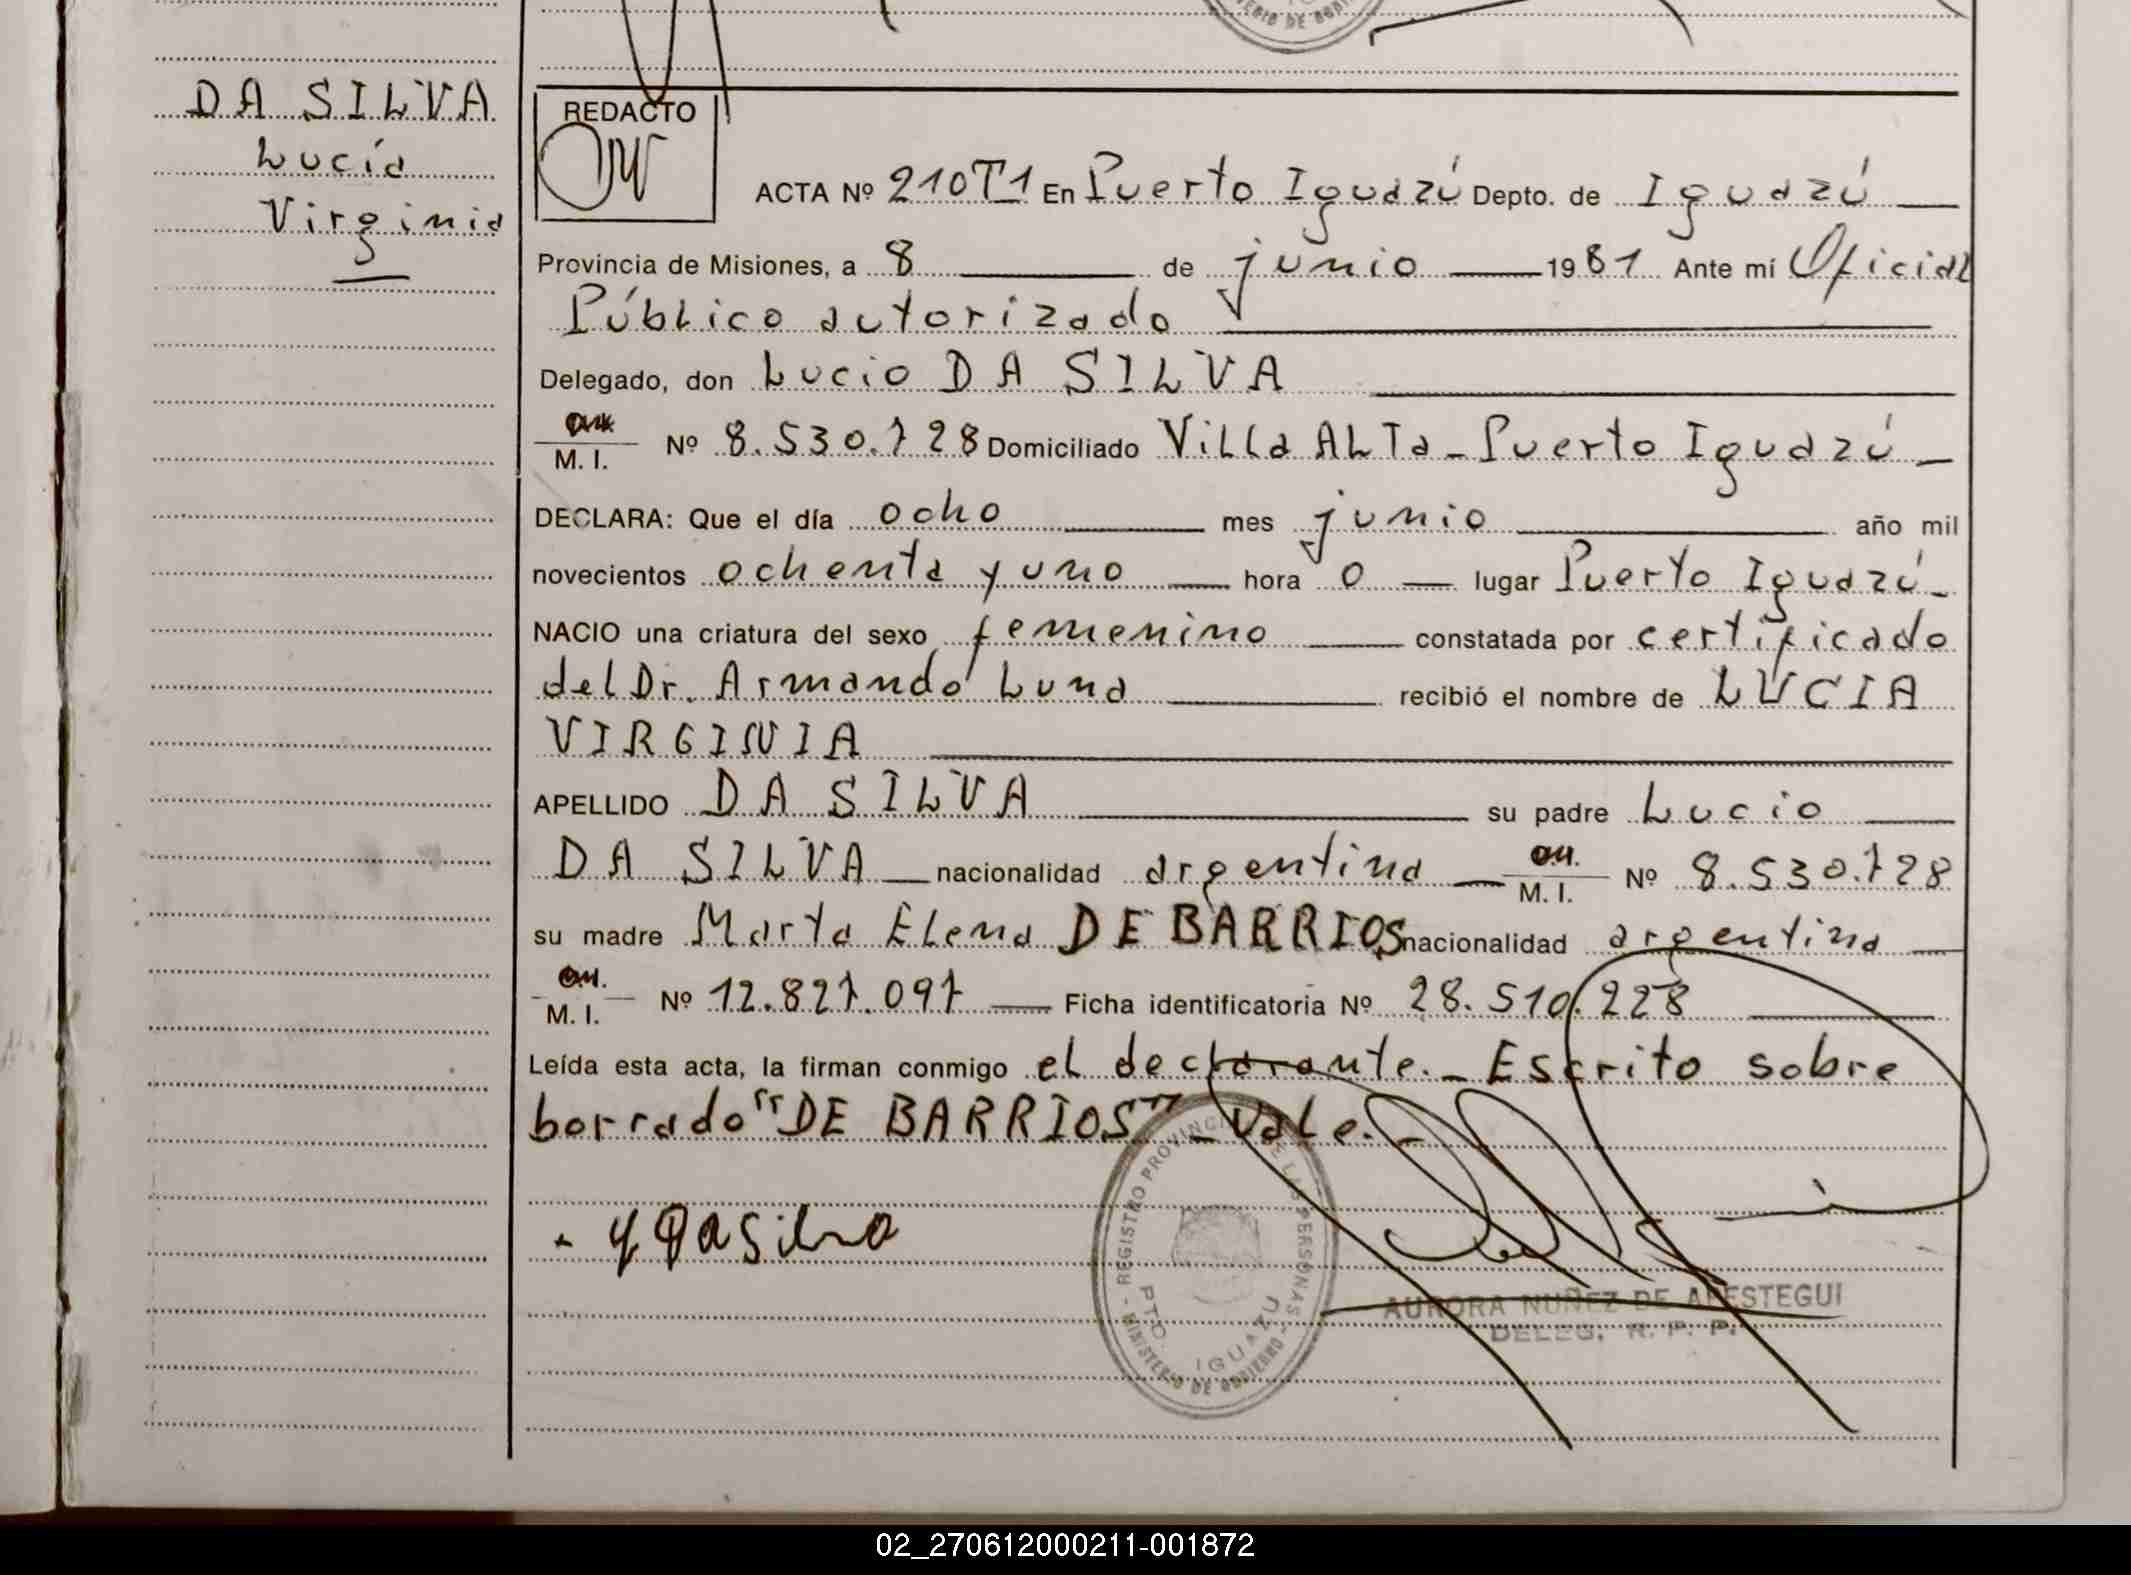 VERIO DE GOBI
DA SILVA
Lucía
Virginia
REDACTO
ACTA Nº 210T1 En Puerto Iguazú Depto. de Iguazú
Provincia de Misiones, a 8 de junio 1981 Ante mí Oficial
Público autorizado
Delegado, don Lucio DA SILVA
M. I. Nº 8.530.728 Domiciliado Villa ALTa - Puerto Iguazú -
DECLARA: Que el día ocho mes junio año mil
novecientos ochenta y uno hora 0 lugar Puerto Iguazú -
NACIO una criatura del sexo femenino constatada por certificado
del Dr. Armando Luna recibió el nombre de LUCIA
VIRGINIA
APELLIDO DA SILVA su padre Lucio
DA SILVA nacionalidad argentina M. I. Nº 8.530.728
su madre Marta Elena DE BARRIOS nacionalidad argentina
M. I. Nº 12.827.097 Ficha identificatoria Nº 28.510.228
Leída esta acta, la firman conmigo el declarante. - Escrito sobre
borrado "DE BARRIOS" - Vale. -
REGISTRO PROVINCIAL DE LAS PERSONAS
PTO. IGUAZU
MINISTERIO DE GOBIERNO
AURORA NUÑEZ DE ARESTEGUI
DELEG. R. P. P.
02_270612000211-001872